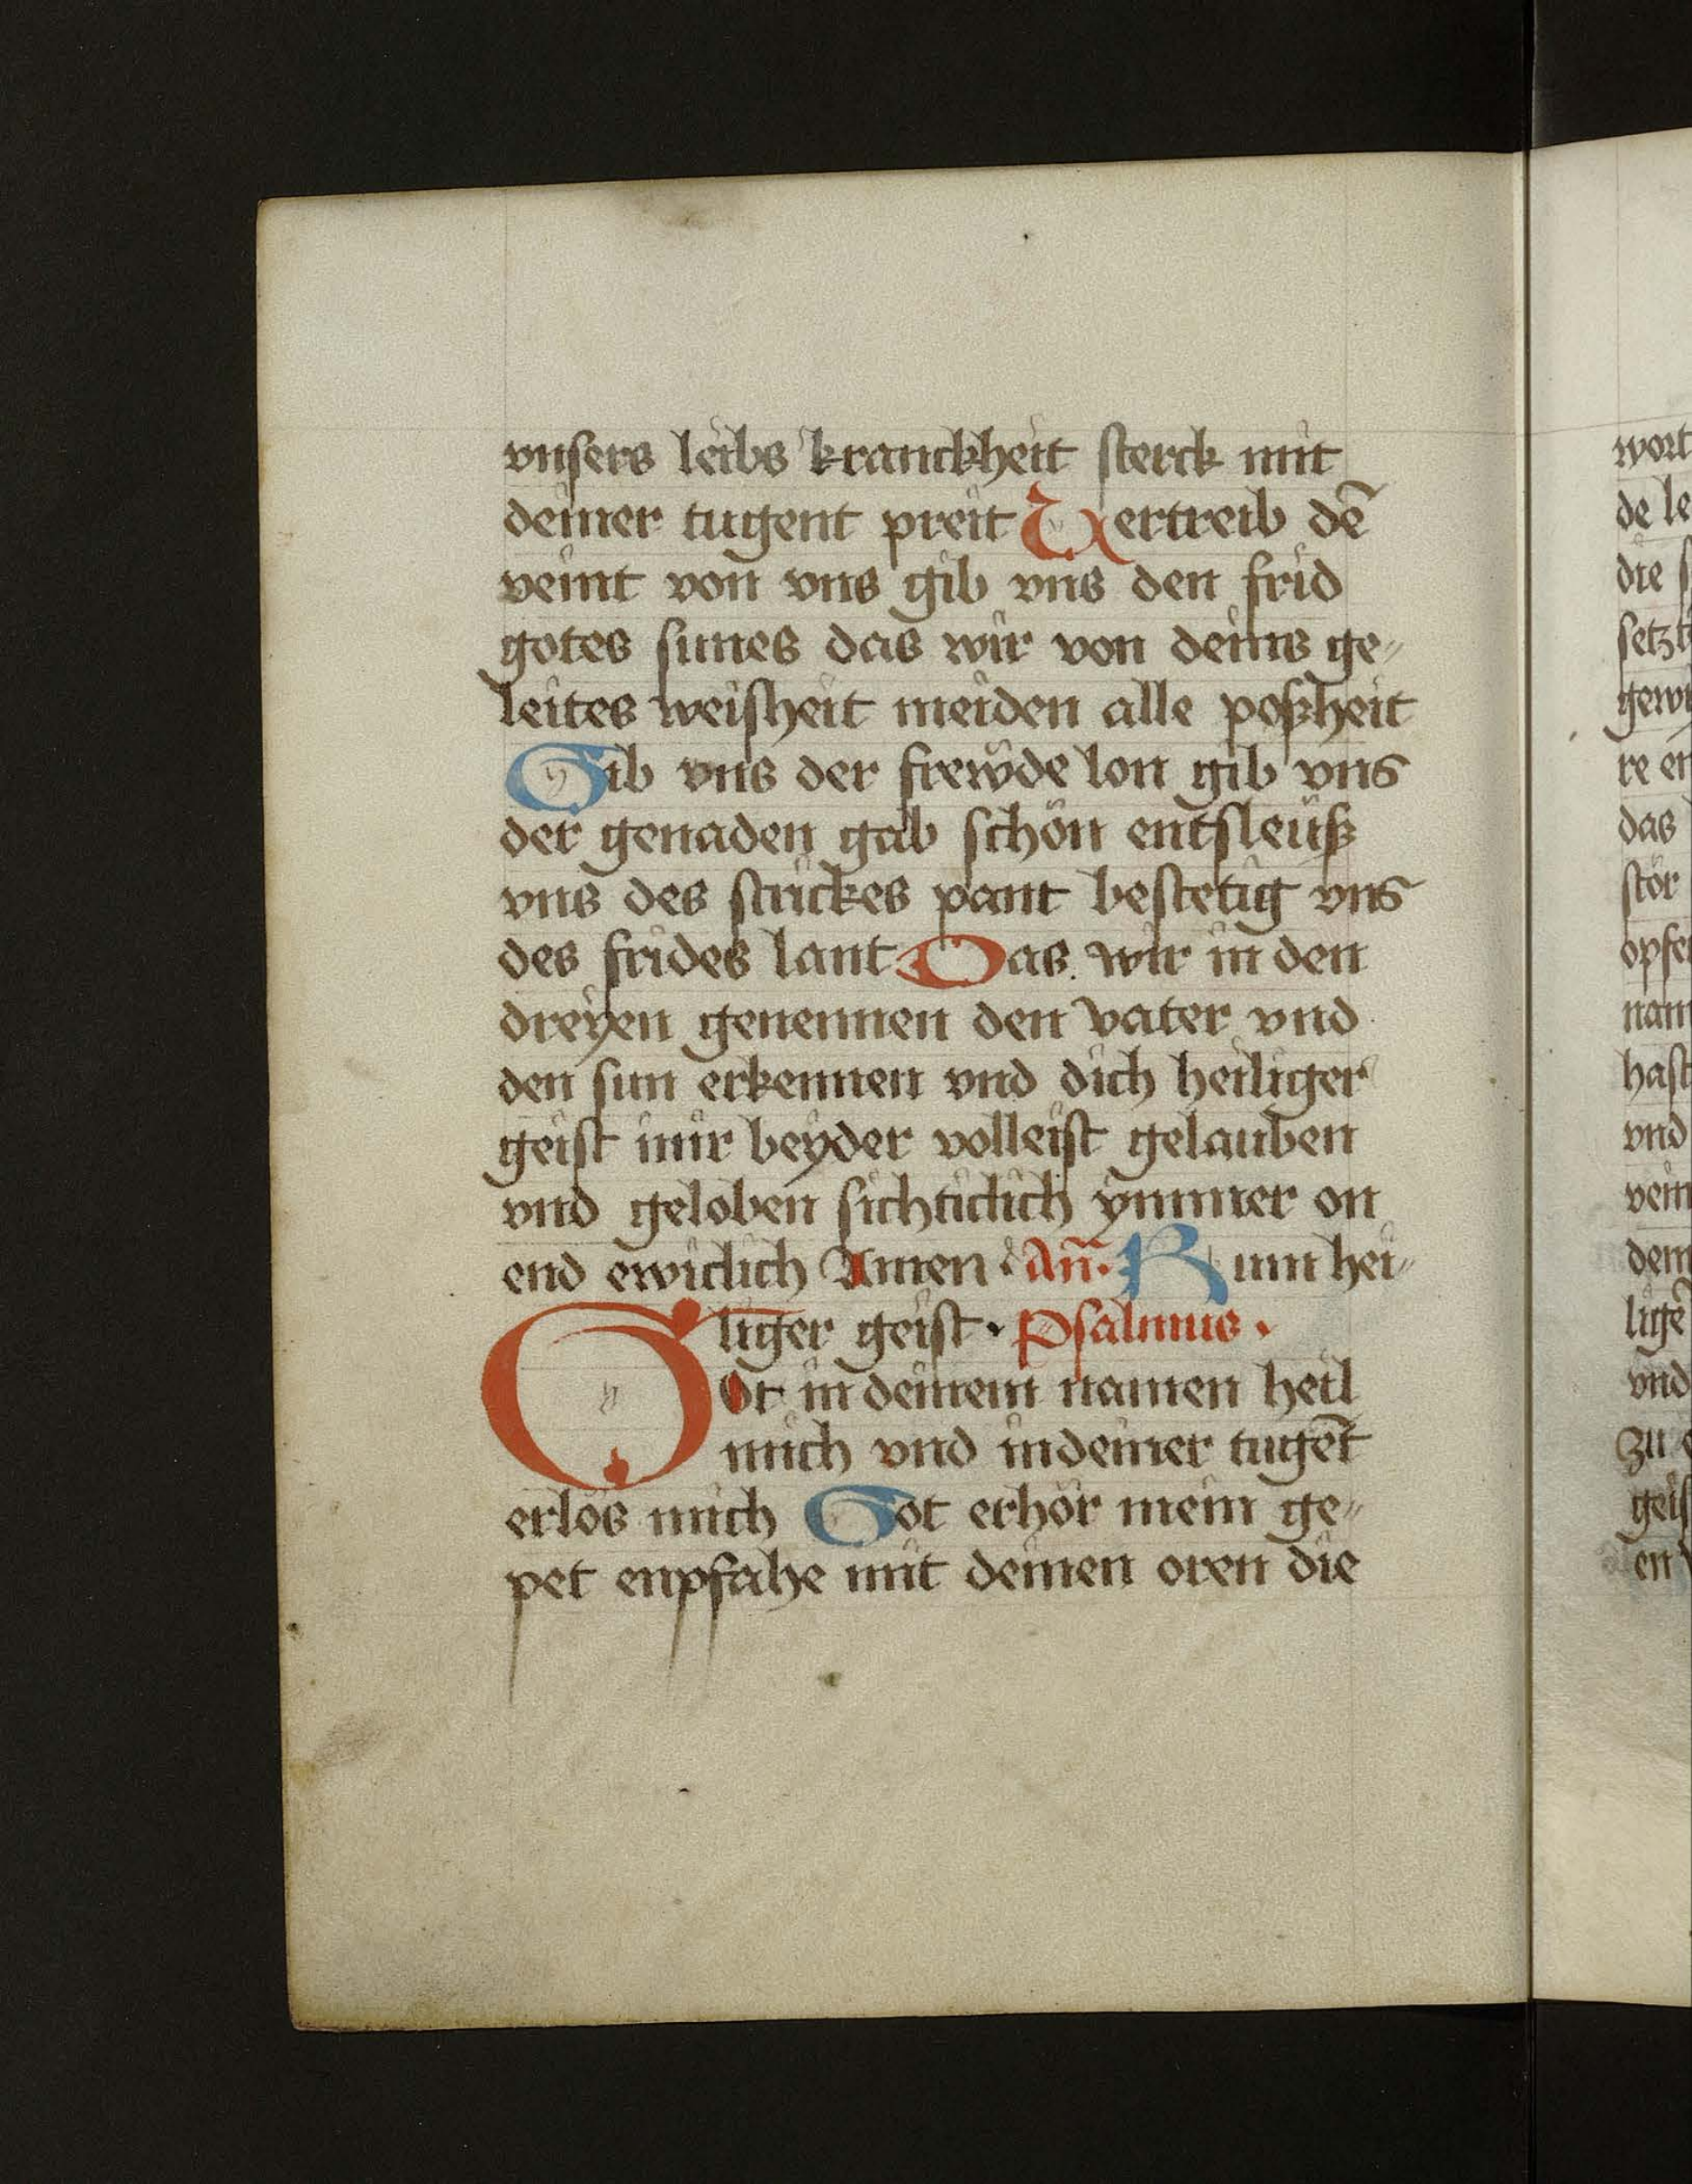 vnsers leibs kranckheit sterck mit
deiner tugent preit Vertreib dē
veint von vns gib vns den frid
gotes sunes das wir von deins ge„
leites weisheit meiden alle poßheit
Gib vns der frewde lon gib vns
der genaden gab schön entsleüß
vns des strickes pant bestetig vns
des frides lant Das wir in den
dreyen genennen den vater vnd
den sun erkennen vnd dich heiliger
geist mir beyder volleist gelauben
vnd geloben sichticlich ymmer on
end ewiclich Amen · Añ· Kum hei„
liger geist · Psalmus ·
Got in deinem namen heil
mich vnd in deiner tugēt
erlös mich Got erhör mein ge„
pet enpfahe mit deinen oren die
wort
de le
die s
setzt
gewi
re en
das
stör
opfe
nam
hast
vnd
vein
dem
ligē
vnd
zu
geis
en